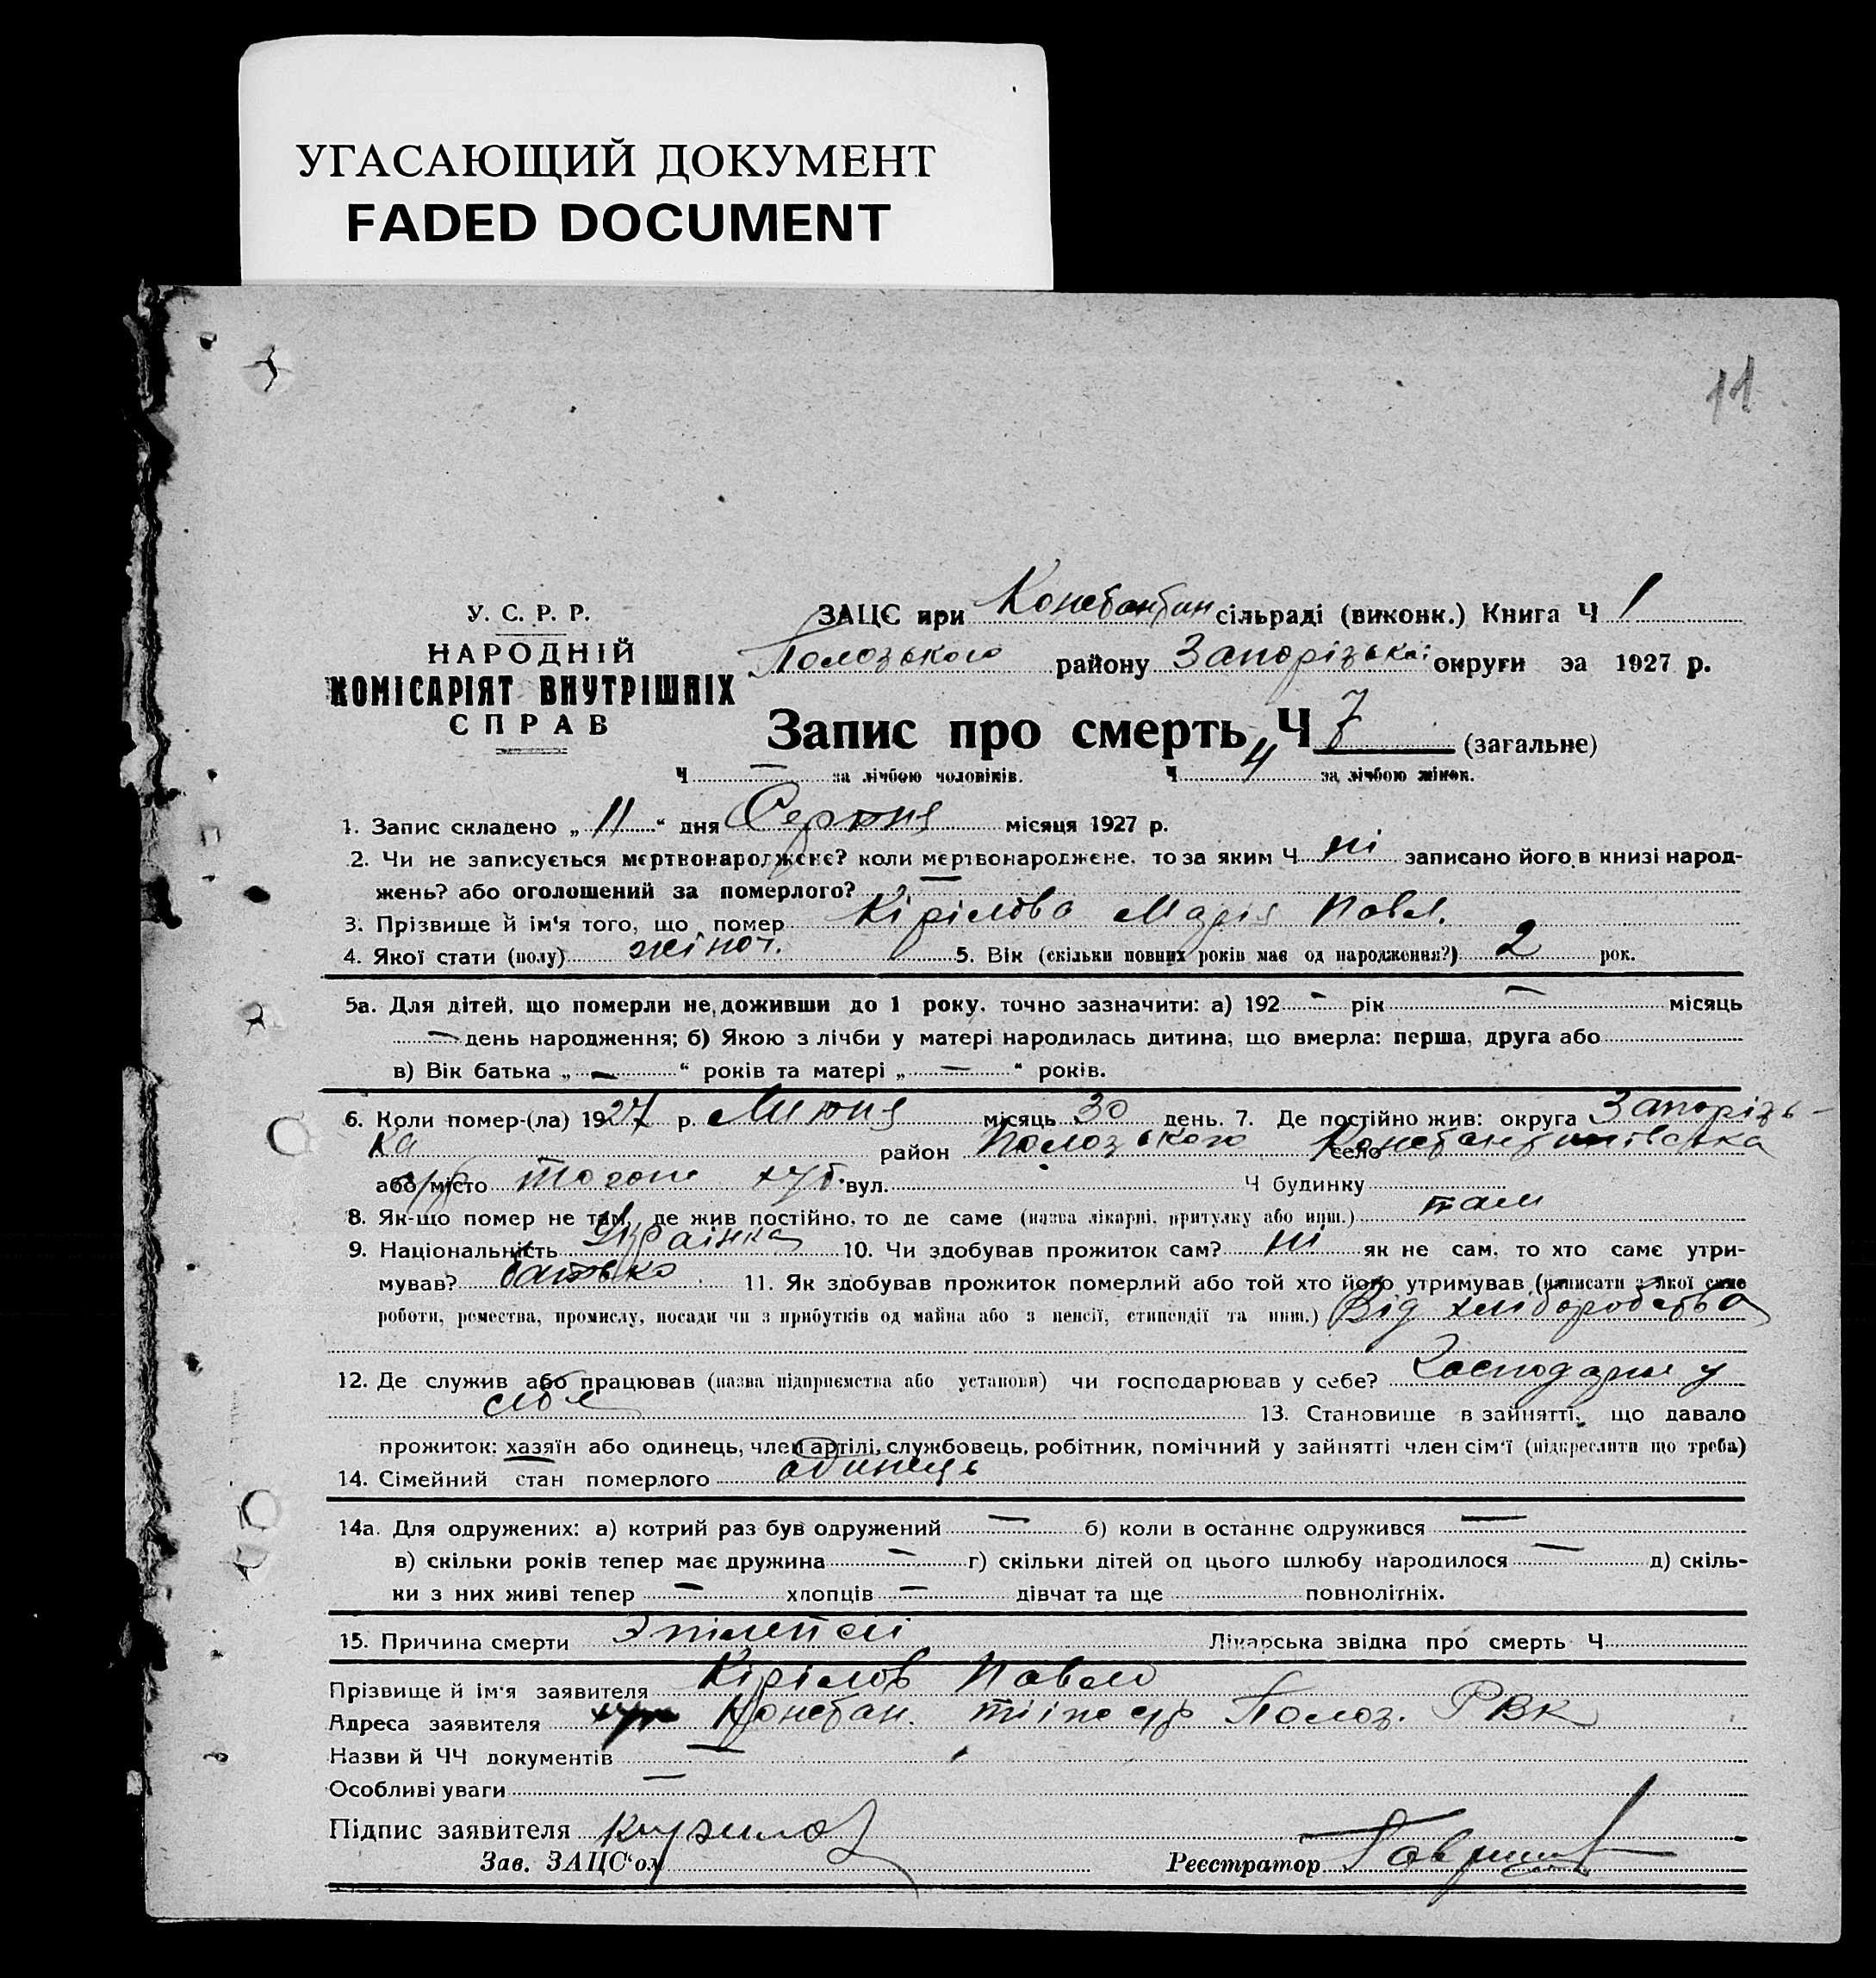 УГАСАЮЩИЙ ДОКУМЕНТ
FADED DOCUMENT
11
У. С. Р. Р.
НАРОДНІЙ
КОМІСАРІЯТ ВНУТРІШНІХ
СПРАВ
ЗАЦС при Константин сільраді (виконк.) Книга Ч 1
Полозького району Запорізької округи за 1927 р.
Запис про смерть Ч 7 (загальне)
Ч — за лічбою чоловіків. Ч 4 за лічбою жінок.
1. Запис складено „ 11 “ дня Серпня місяця 1927 р.
2. Чи не записується мертвонароджене? коли мертвонароджене, то за яким Ч ні записано його в книзі народ-
жень? або оголошений за померлого? —
3. Прізвище й ім'я того, що помер Кірілова Марія Павл.
4. Якої статі (полу) жіноч. 5. Вік (скільки повних років має од народження?) 2 рок.
5а. Для дітей, що померли не доживши до 1 року, точно зазначити: а) 192 - рік — місяць
— день народження; б) Якою з лічби у матері народилась дитина, що вмерла: перша, друга або
в) Вік батька „ — “ років та матері „ — “ років.
6. Коли помер-(ла) 1927 р. Июня місяць 30 день. 7. Де постійно жив: округа Запорізь-
ка район Полозького село Константинівська
або місто хут. вул. Ч будинку
8. Як-що помер не там, де жив постійно, то де саме (назва лікарні, притулку або инш.) там
9. Національність Українка 10. Чи здобував прожиток сам? ні як не сам, то хто саме утри-
мував? батько 11. Як здобував прожиток померлий або той хто його утримував (написати з якої саме
роботи, ремества, промислу, посади чи з прибутків од майна або з пенсії, стипендії та инш.) Від хліборобства
12. Де служив або працював (назва підприємства або установи) чи господарював у себе? Господарює у
себе 13. Становище в зайнятті, що давало
прожиток: хазяїн або одинець, член артілі, службовець, робітник, помічний у зайнятті член сім'ї (підкреслити що треба)
14. Сімейний стан померлого одинець
14а. Для одружених: а) котрий раз був одружений — б) коли в останнє одружився —
в) скільки років тепер має дружина — г) скільки дітей од цього шлюбу народилося — д) скіль-
ки з них живі тепер — хлопців — дівчат та ще повнолітніх.
15. Причина смерти Эпілепсії Лікарська звідка про смерть Ч
Прізвище й ім'я заявителя Кірілов Павло
Адреса заявителя Констан. Полоз. РВК
Назви й ЧЧ документів —
Особливі уваги —
Підпис заявителя Кирилов
Зав. ЗАЦС'ом Реєстратор